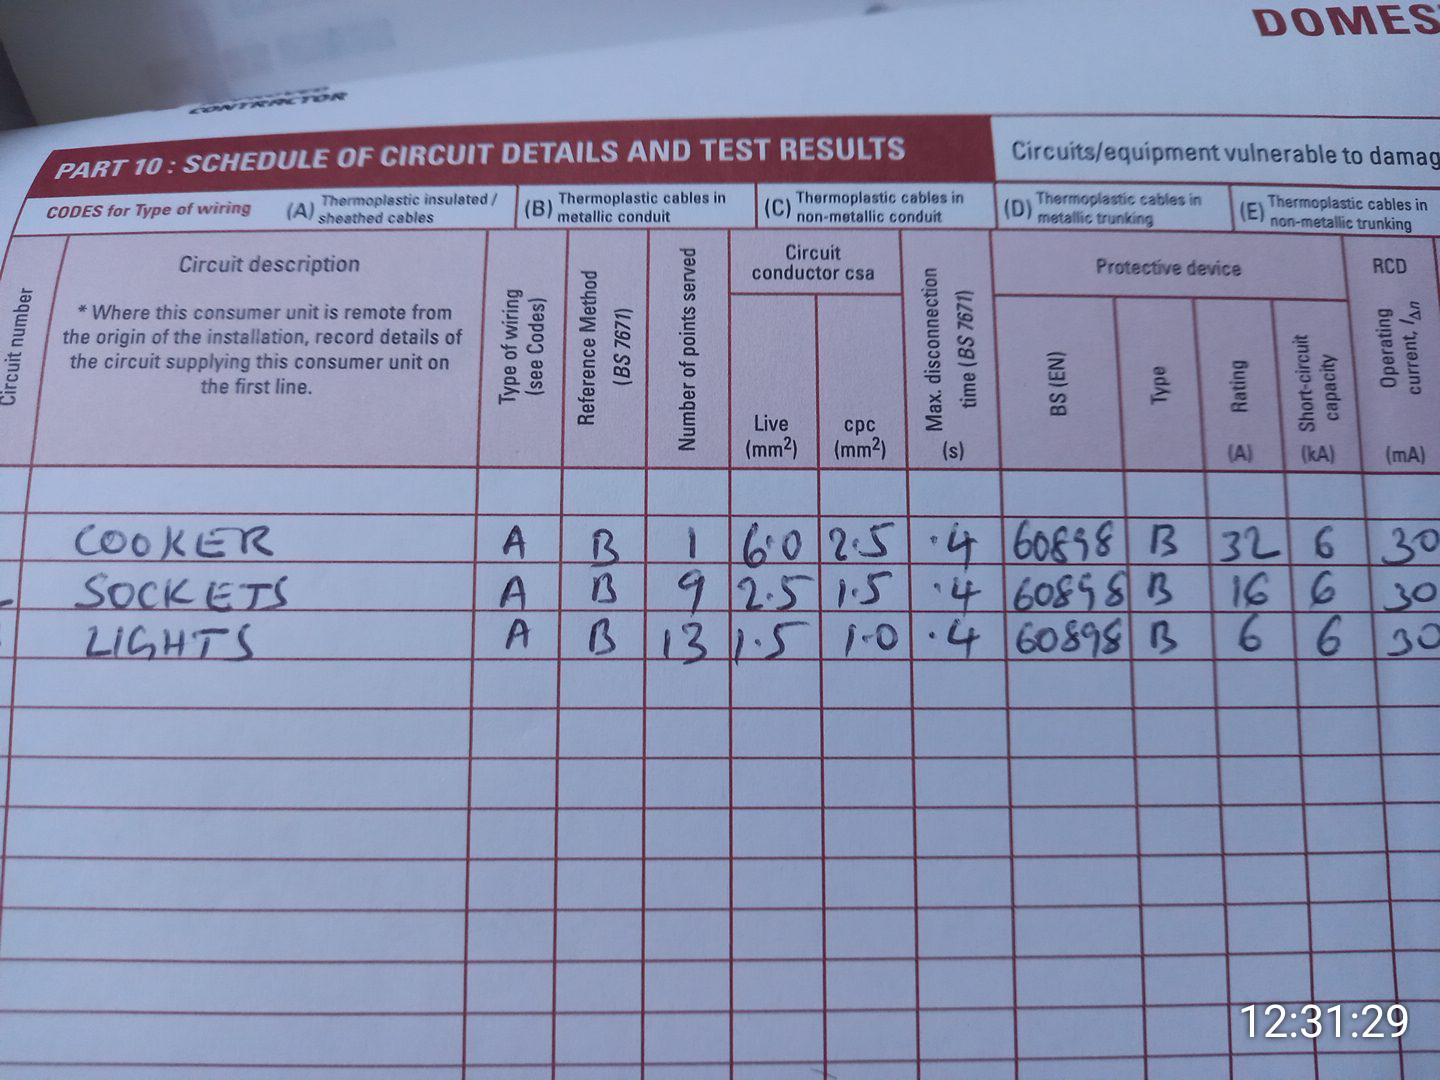 DOMES
CONTRACTOR
PART 10 : SCHEDULE OF CIRCUIT DETAILS AND TEST RESULTS
Circuits/equipment vulnerable to damag
CODES for Type of wiring
(A) Thermoplastic insulated /
sheathed cables
(B) Thermoplastic cables in
metallic conduit
(C) Thermoplastic cables in
non-metallic conduit
(D) Thermoplastic cables in
metallic trunking
(E) Thermoplastic cables in
non-metallic trunking
Circuit number
Circuit description
* Where this consumer unit is remote from
the origin of the installation, record details of
the circuit supplying this consumer unit on
the first line.
Type of wiring
(see Codes)
Reference Method
(BS 7671)
Number of points served
Circuit
conductor csa
Live
(mm2)
cpc
(mm2)
Max. disconnection
time (BS 7671)
(s)
Protective device
BS (EN)
Type
Rating
(A)
Short-circuit
capacity
(kA)
RCD
Operating
current, IΔn
(mA)
COOKER A B 1 6.0 2.5 .4 60898 B 32 6 30
SOCKETS A B 9 2.5 1.5 .4 60898 B 16 6 30
LIGHTS A B 13 1.5 1.0 .4 60898 B 6 6 30
12:31:29